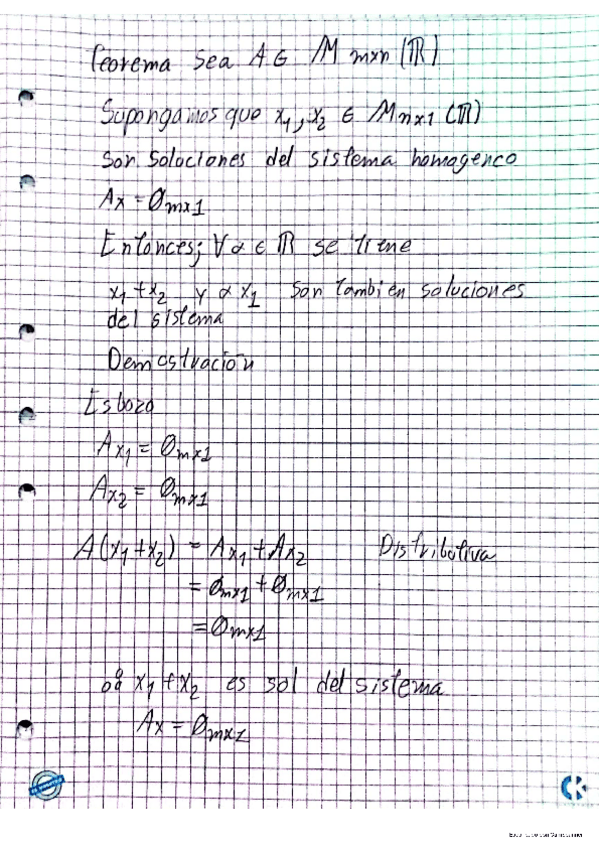 Teorema Sea A ∈ M mxn (ℝ)
Supongamos que x₁, x₂ ∈ Mnx1 (ℝ)
son soluciones del sistema homogeneo
Ax = Ømx1
Entonces; ∀α ∈ ℝ se tiene
x₁ + x₂ y α x₁ son tambien soluciones
del sistema
Demostración
Esbozo
Ax₁ = Ømx1
Ax₂ = Ømx1
A(x₁+x₂) = Ax₁ + Ax₂ Distributiva
= Ømx1 + Ømx1
= Ømx1
∴ x₁ + x₂ es sol del sistema
Ax = Ømx1